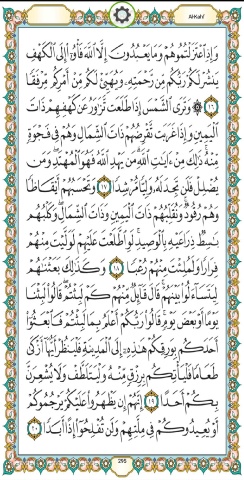 Al-Kahf
وَإِذِ ٱعۡتَزَلۡتُمُوهُمۡ وَمَا يَعۡبُدُونَ إِلَّا ٱللَّهَ فَأۡوُۥٓاْ إِلَى ٱلۡكَهۡفِ
يَنشُرۡ لَكُمۡ رَبُّكُم مِّن رَّحۡمَتِهِۦ وَيُهَيِّئۡ لَكُم مِّنۡ أَمۡرِكُم مِّرۡفَقٗا
١٦ ۞ وَتَرَى ٱلشَّمۡسَ إِذَا طَلَعَت تَّزَٰوَرُ عَن كَهۡفِهِمۡ ذَاتَ
ٱلۡيَمِينِ وَإِذَا غَرَبَت تَّقۡرِضُهُمۡ ذَاتَ ٱلشِّمَالِ وَهُمۡ فِي فَجۡوَةٖ
مِّنۡهُۚ ذَٰلِكَ مِنۡ ءَايَٰتِ ٱللَّهِۗ مَن يَهۡدِ ٱللَّهُ فَهُوَ ٱلۡمُهۡتَدِۖ وَمَن
يُضۡلِلۡ فَلَن تَجِدَ لَهُۥ وَلِيّٗا مُّرۡشِدٗا ١٧ وَتَحۡسَبُهُمۡ أَيۡقَاظٗا
وَهُمۡ رُقُودٞۚ وَنُقَلِّبُهُمۡ ذَاتَ ٱلۡيَمِينِ وَذَاتَ ٱلشِّمَالِۖ وَكَلۡبُهُم
بَٰسِطٞ ذِرَاعَيۡهِ بِٱلۡوَصِيدِۚ لَوِ ٱطَّلَعۡتَ عَلَيۡهِمۡ لَوَلَّيۡتَ مِنۡهُمۡ
فِرَارٗا وَلَمُلِئۡتَ مِنۡهُمۡ رُعۡبٗا ١٨ وَكَذَٰلِكَ بَعَثۡنَٰهُمۡ
لِيَتَسَآءَلُواْ بَيۡنَهُمۡۚ قَالَ قَآئِلٞ مِّنۡهُمۡ كَمۡ لَبِثۡتُمۡۖ قَالُواْ لَبِثۡنَا
يَوۡمًا أَوۡ بَعۡضَ يَوۡمٖۚ قَالُواْ رَبُّكُمۡ أَعۡلَمُ بِمَا لَبِثۡتُمۡ فَٱبۡعَثُوٓاْ
أَحَدَكُم بِوَرِقِكُمۡ هَٰذِهِۦٓ إِلَى ٱلۡمَدِينَةِ فَلۡيَنظُرۡ أَيُّهَآ أَزۡكَىٰ
طَعَامٗا فَلۡيَأۡتِكُم بِرِزۡقٖ مِّنۡهُ وَلۡيَتَلَطَّفۡ وَلَا يُشۡعِرَنَّ
بِكُمۡ أَحَدًا ١٩ إِنَّهُمۡ إِن يَظۡهَرُواْ عَلَيۡكُمۡ يَرۡجُمُوكُمۡ
أَوۡ يُعِيدُوكُمۡ فِي مِلَّتِهِمۡ وَلَن تُفۡلِحُوٓاْ إِذًا أَبَدٗا ٢٠
295